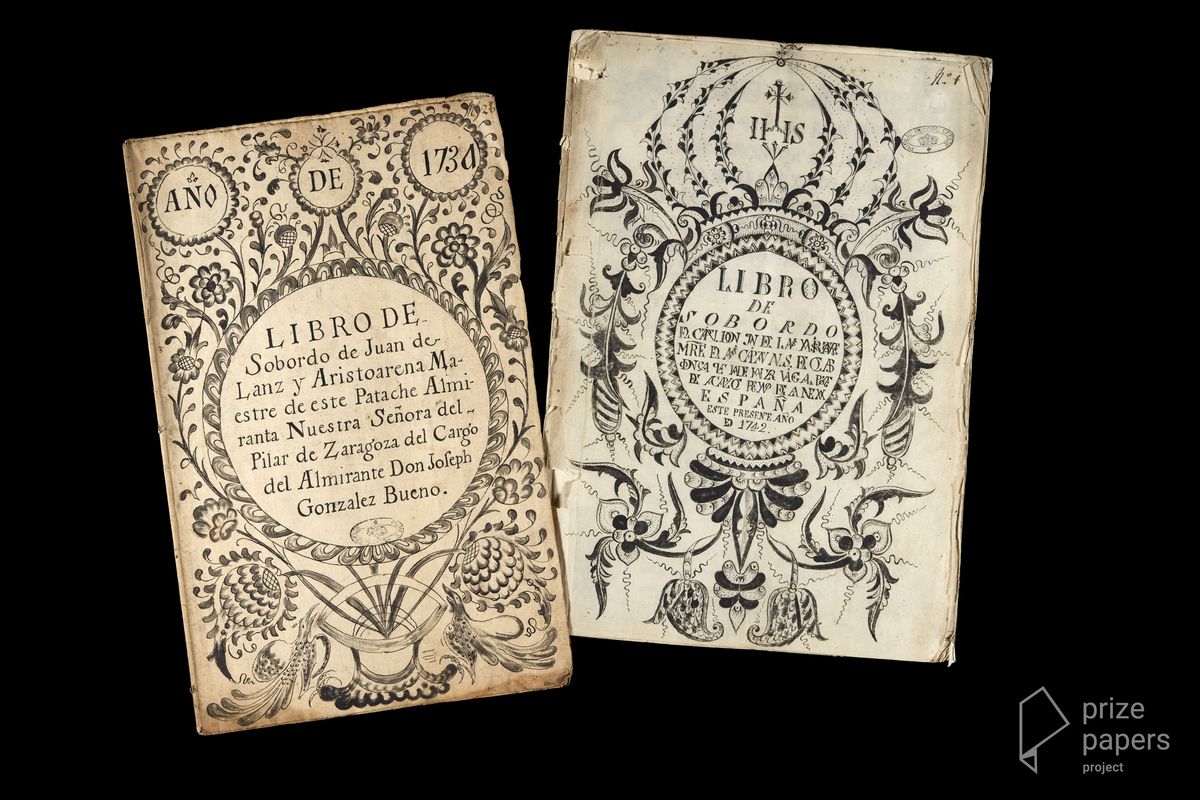 AÑO
DE
LIBRO DE
Sobordo de Juan de
Lanz y Aristoarena Ma-
estre de este Patache Almi-
ranta Nuestra Señora del
Pilar de Zaragoza del Cargo
del Almirante Don Joseph
Gonzalez Bueno.
Nº 1
IHS
LIBRO
DE
SOBORDO
ESPAÑA
ESTE PRESENTE AÑO
D 1742.
prize
papers
project